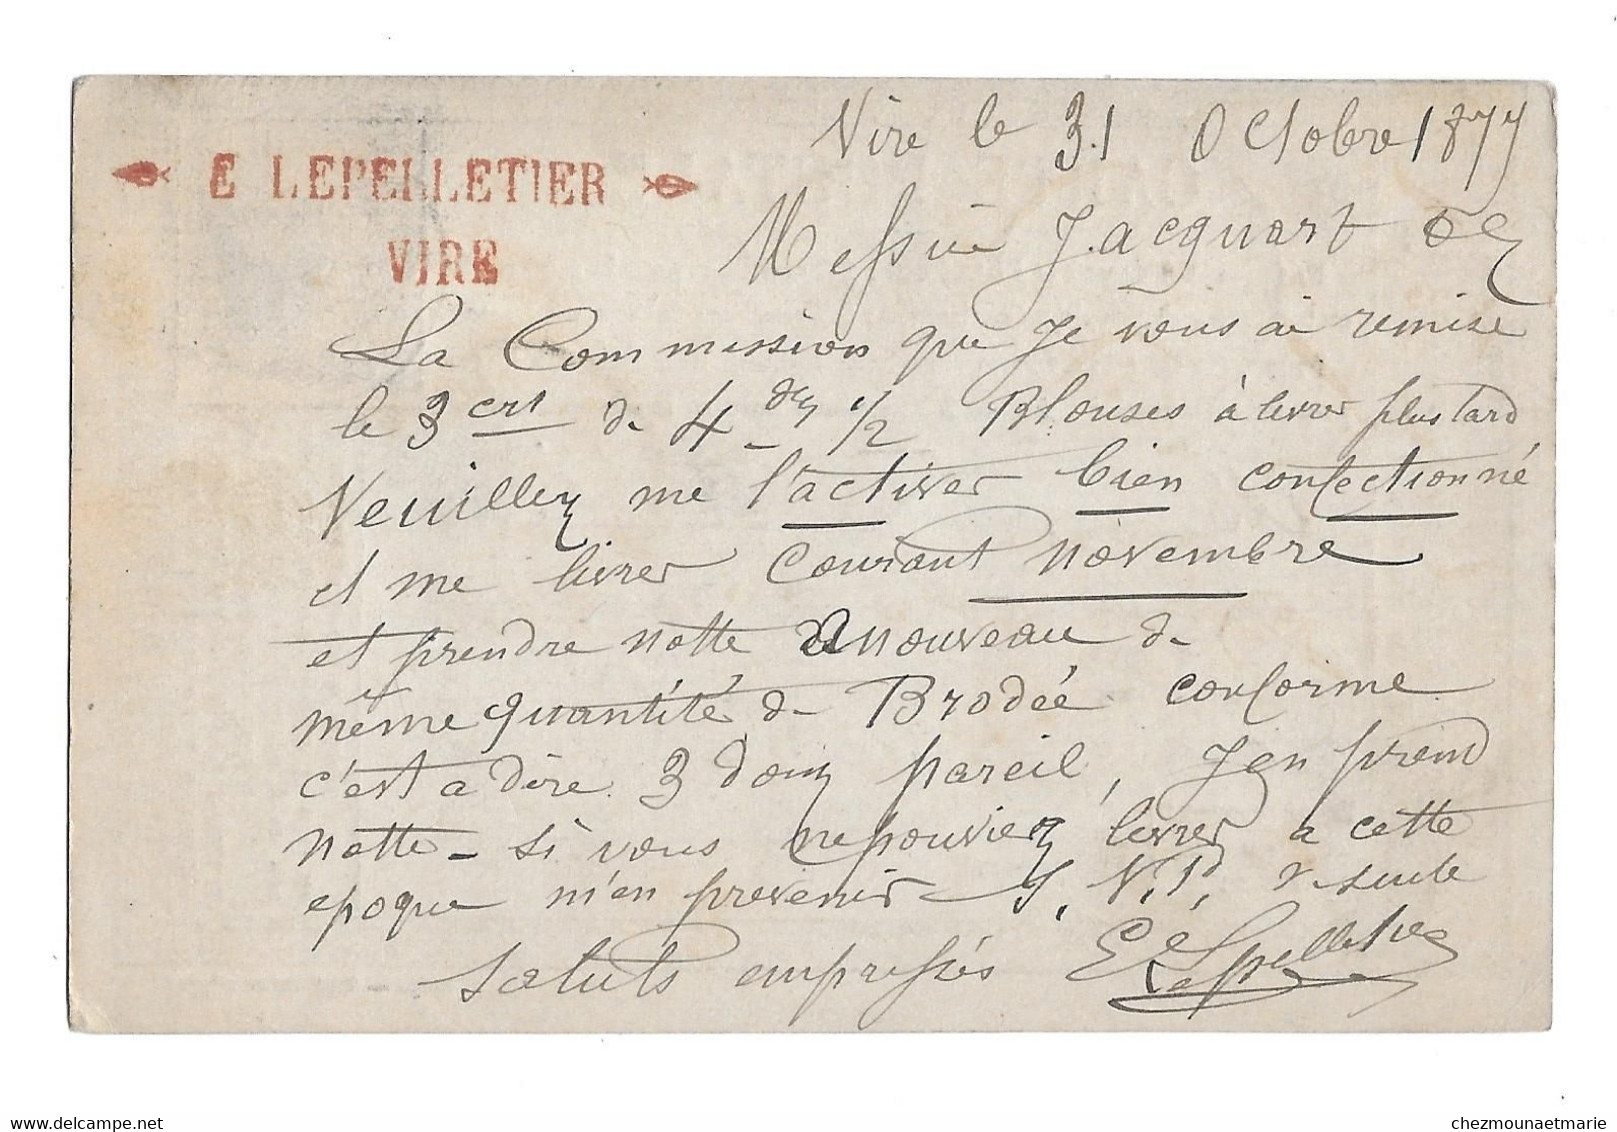 Vire le 31 Octobre 1877
E LEPELLETIER
VIRE
Messieu Jacquart
La Commission que Je vous ai remise
le 3 crt de 4 dz 1/2 Blouses à livrer plus tard
Veuillez me l'activer bien confectionné
et me livrer courant novembre
et prendre notte de nouveau de
même quantité de Brodée conforme
c'est a dire 3 douz pareil, J en prend
notte - si vous ne pouviez livrer a cette
epoque m'en prevenir S. V. P. de suite
Saluts empressés E Lepelletier
chezmounaetmarie
www.delcampe.net